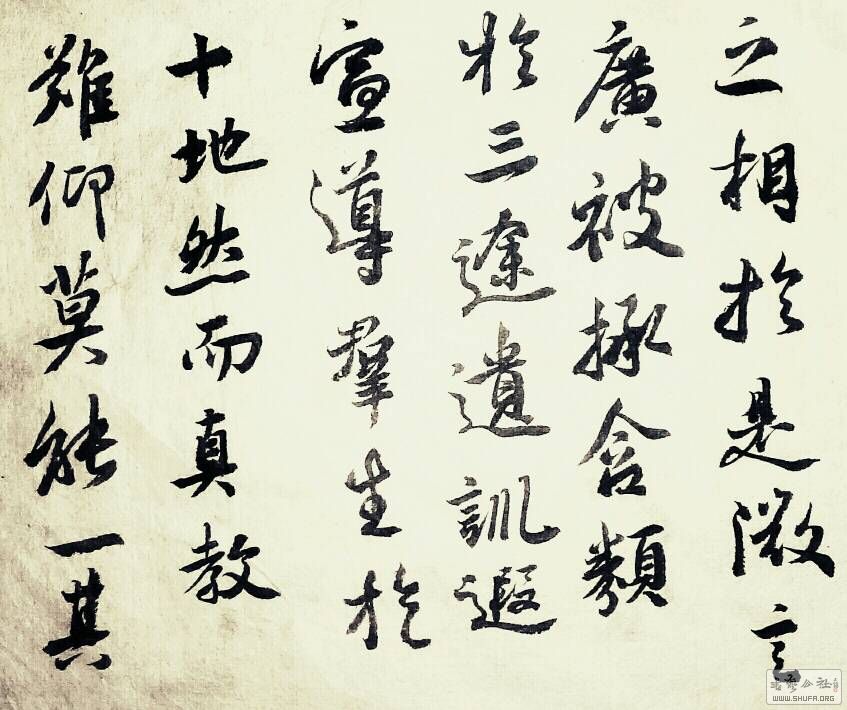 之相於是微言
廣被拯含類
於三途遺訓遐
宣導羣生於
十地然而真教
難仰莫能一其
WWW.SHUFA.ORG